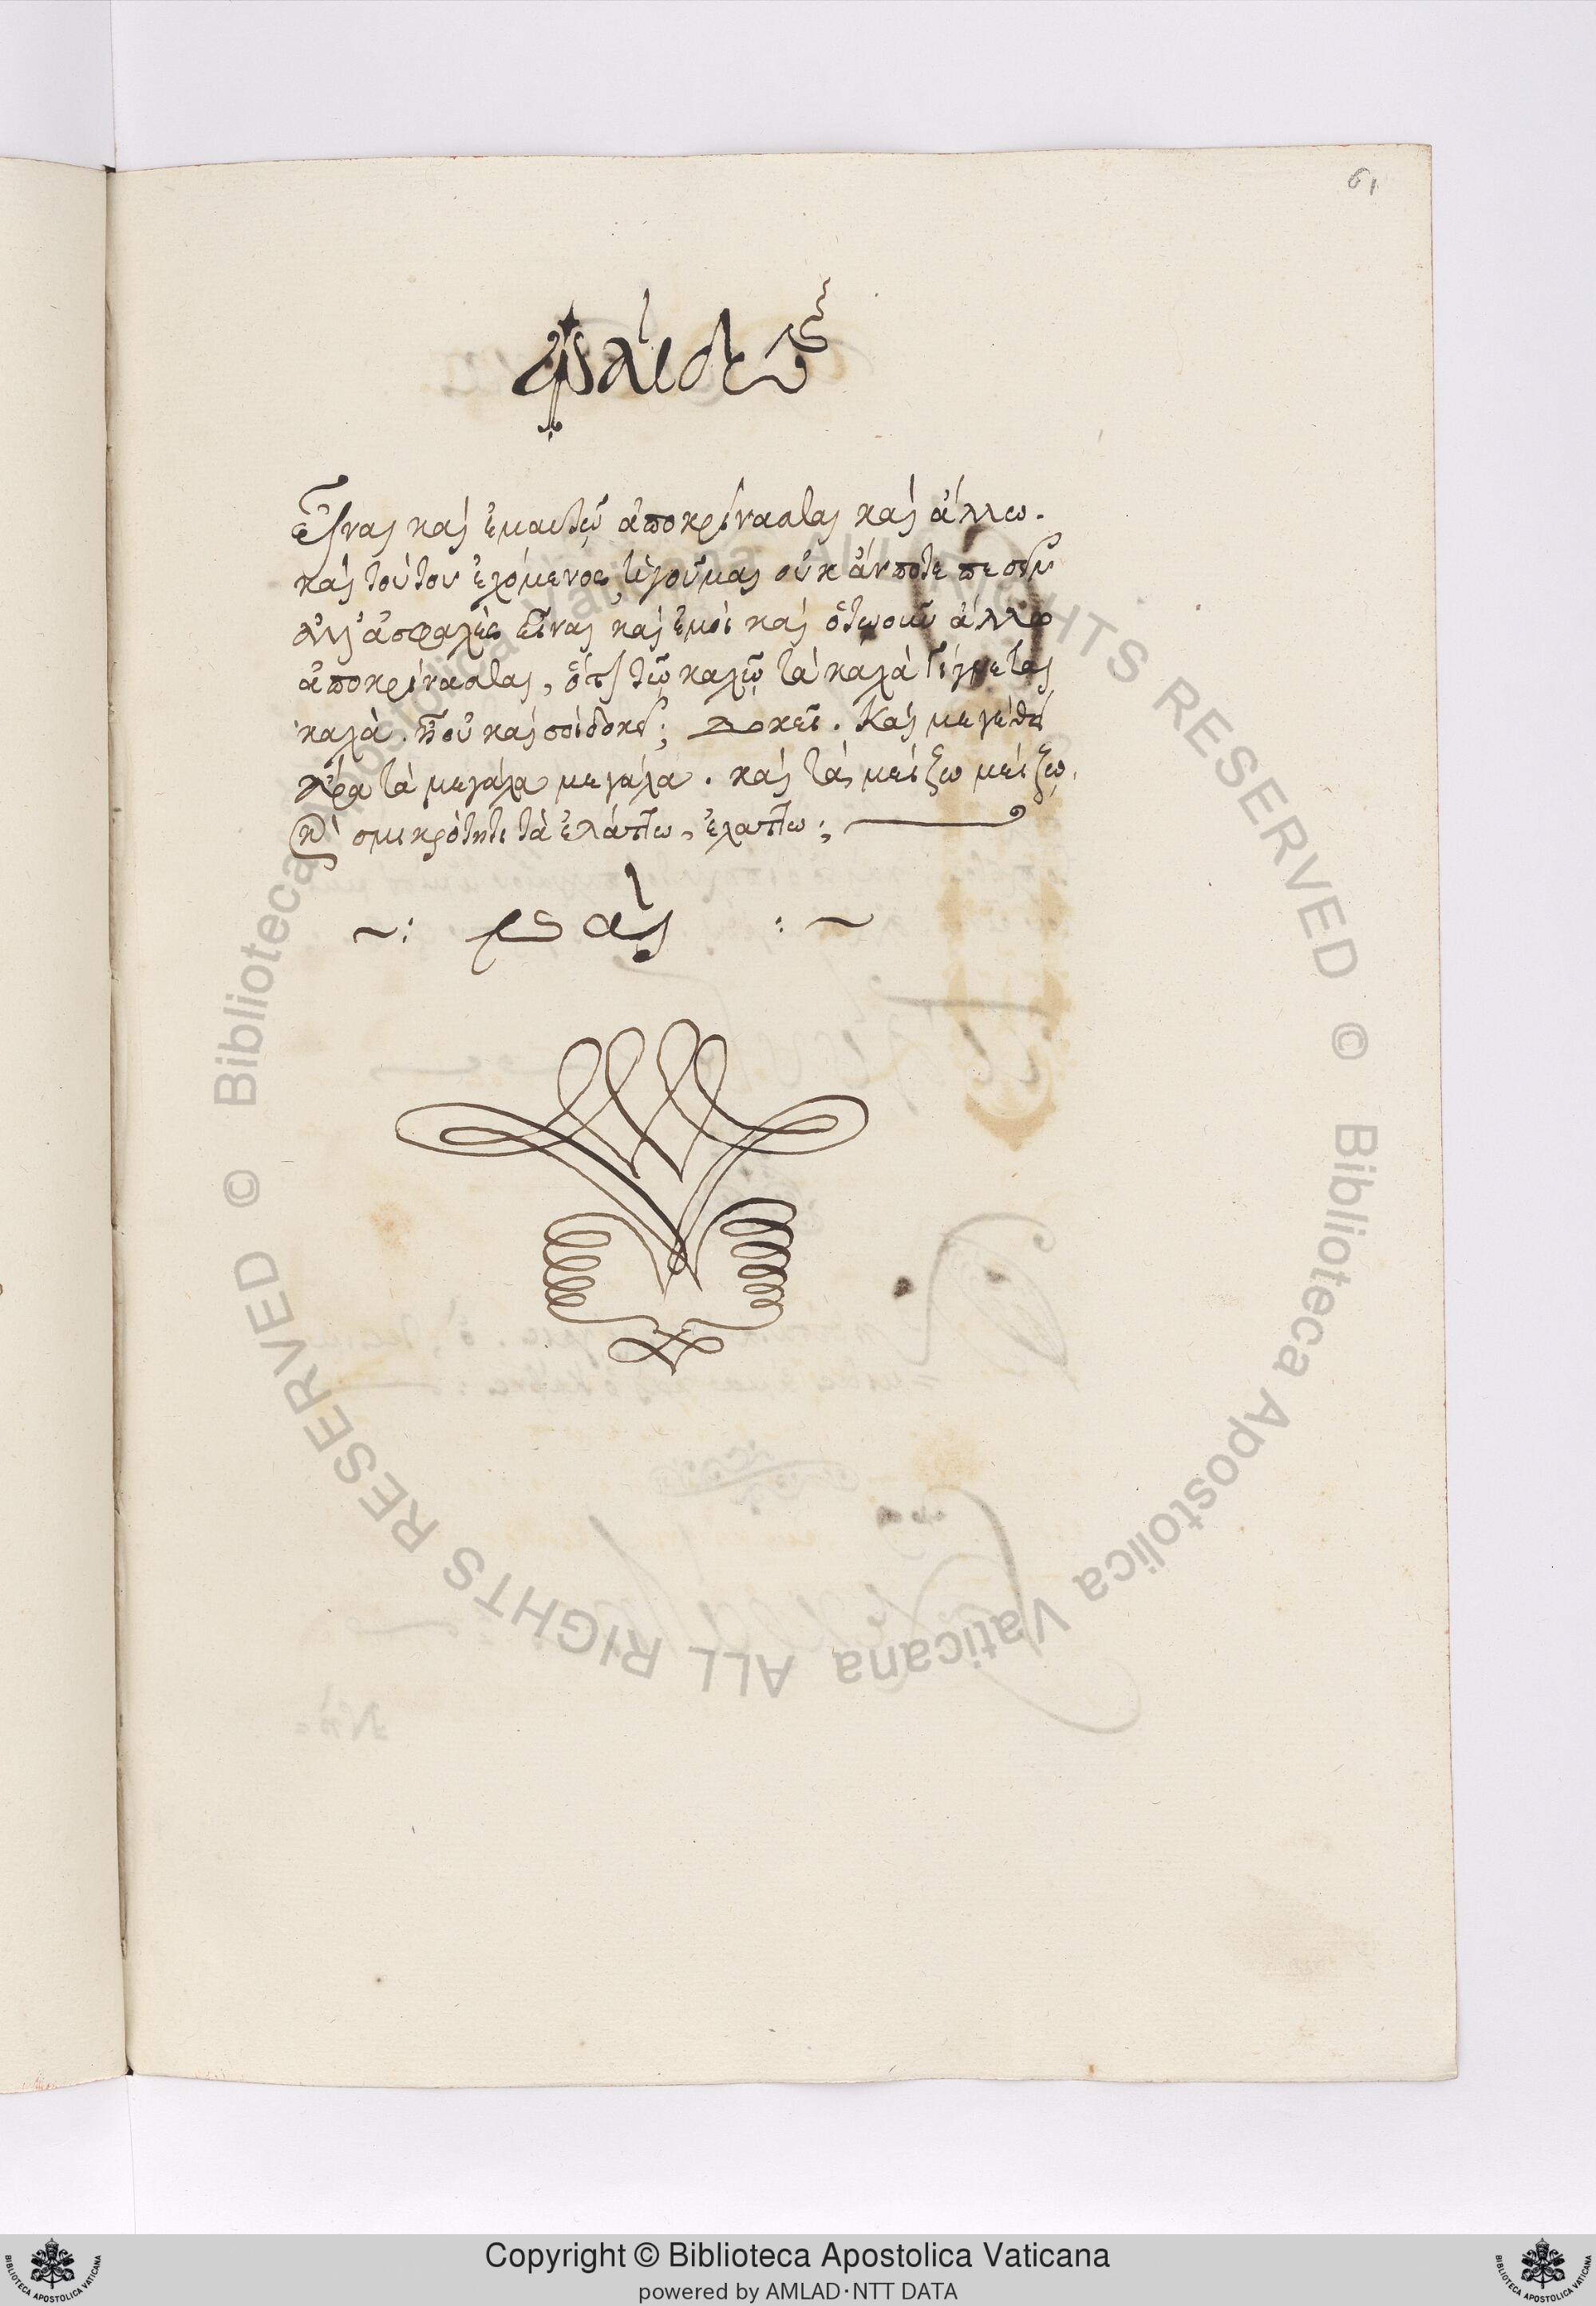 61
Φαίδων
Εἶναι καὶ ἐμαυτῷ ἀποκρίνασθαι καὶ ἄλλω.
καὶ τούτου ἐχόμενος ἡγοῦμαι οὐκ ἄν ποτε πεσεῖν
ἀλλ' ἀσφαλὲς εἶναι καὶ ἐμοὶ καὶ ὁτωοῦν ἄλλῳ
ἀποκρίνασθαι, ὅτι τῷ καλῷ τὰ καλὰ γίγνεται
καλὰ. ἢ οὐ καὶ σοὶ δοκεῖ; Δοκεῖ. Καὶ μεγέθει
ἄρα τὰ μεγάλα μεγάλα. καὶ τὰ μείζω μείζω.
καὶ σμικρότητι τὰ ἐλάττω, ἐλάττω;
~: Ναὶ :~
© Biblioteca Apostolica Vaticana ALL RIGHTS RESERVED © Biblioteca Apostolica Vaticana ALL RIGHTS RESERVED
Copyright © Biblioteca Apostolica Vaticana
powered by AMLAD·NTT DATA
BIBLIOTECA APOSTOLICA VATICANA
BIBLIOTECA APOSTOLICA VATICANA